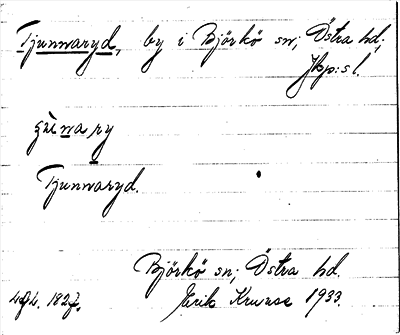 Tjunnaryd, by i Björkö sn; Östra hd;
Jkp:s l.
Tjunnaryd.
Björkö sn; Östra hd.
Erik Kruuse 1933.